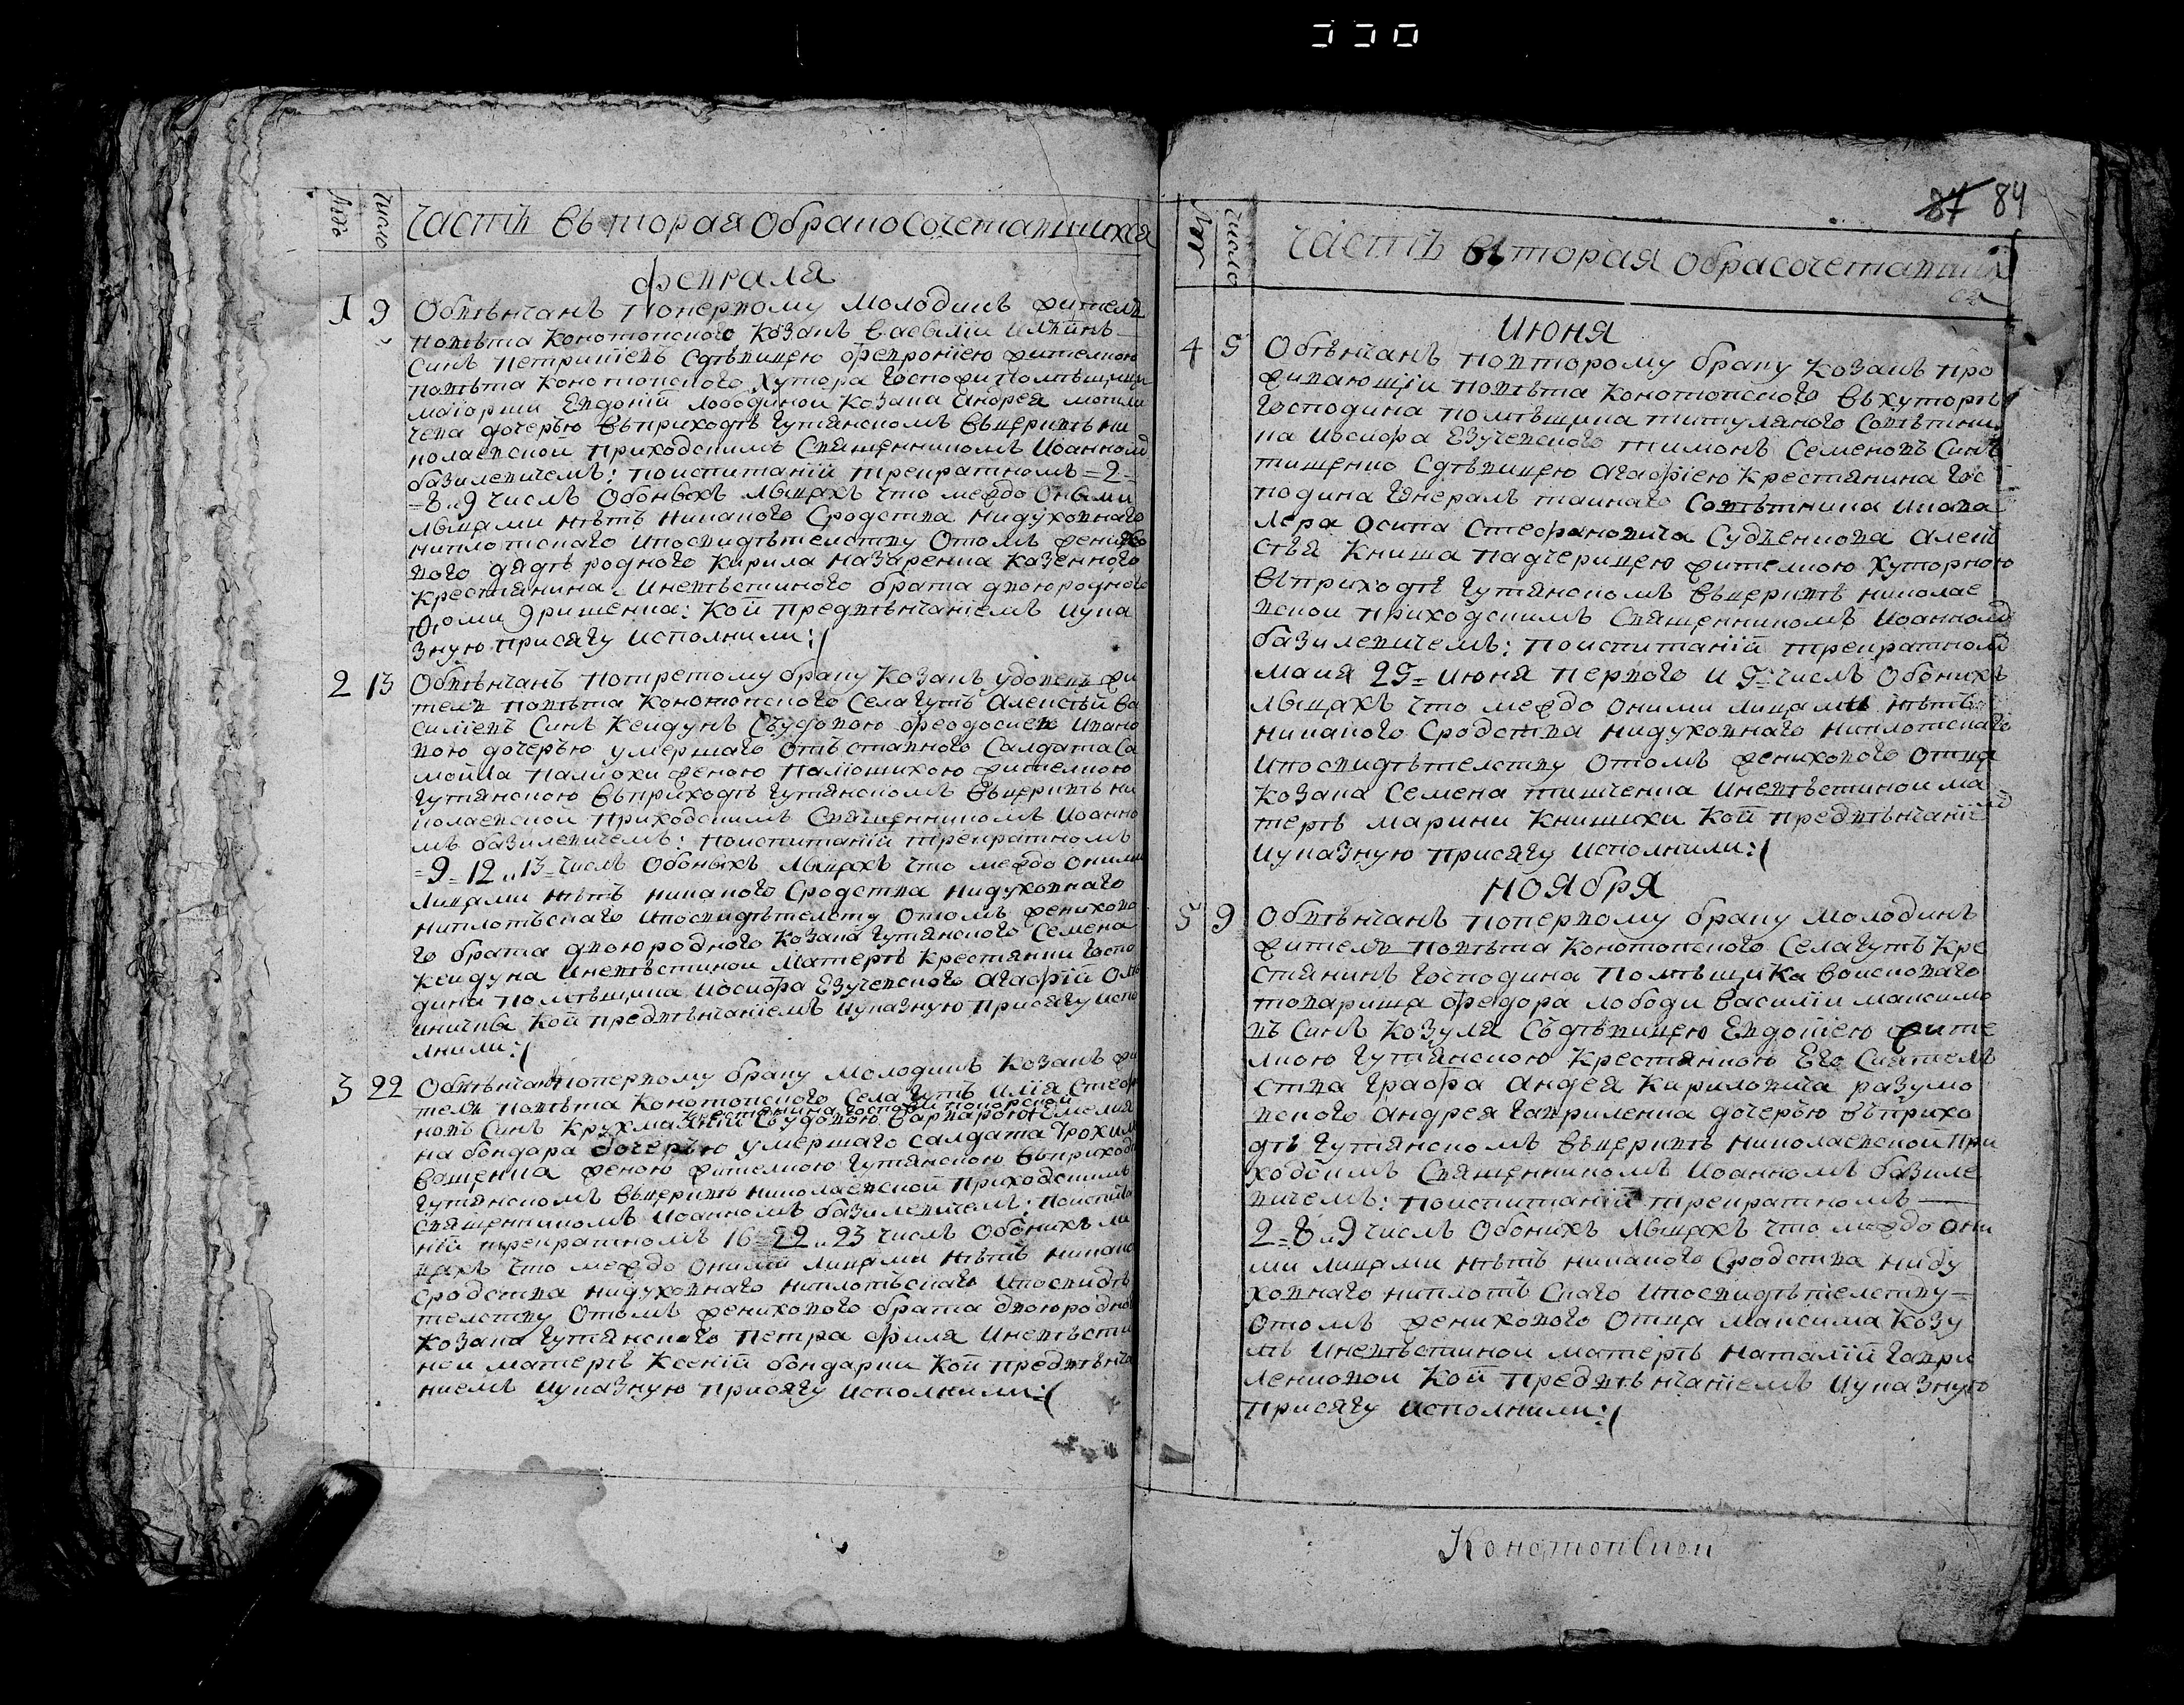 Лѣтъ
Число
Часть въторая Обракосочетавшихся
Февраля
1 9 Обвѣнчанъ поперво​му молодикъ жителъ
повѣта Конотопского Козакъ Василій Илѣинъ
Синъ Петрищевъ Сдѣвицею Февронiею жителною
повѣта Конотопского Хутора Госпожи Помѣщици
маіорши Евдокій Лободиной Козака Андрея
чева дочерью Въприходѣ Гутянскомъ Въцерквѣ Ни
колаевской приходскимъ Священникомъ Иоанномъ
базилевичемъ: поиспитаній трекратномъ = 2 =
= 8 и 9 числъ Обоныхъ лыцахъ что между Оными
лыцами нѣтъ никакого Сродства нидуховнаго
ниплотскаго ипосвидѣтелству Отомъ женихо
вого дядѣ родного Кирила Назаренка Казенного
Крестянина: Иневѣстиного брата двоюродного
Юрищенка: Кой предвѣнчаніемъ иука
зную присягу исполнили:/
2 13 Обвѣнчанъ потретому браку Козакъ удовец жи
телъ повѣта Конотопского Села Гутъ Алексѣй Ва
силіевъ Синъ Кейдунъ Съудовою Феодосиею Ивано
вою дочерью умершаго Отъставного Салдата Са
мойла Паліохи женою Паліошихою жителною
Гутянскою Въприходѣ Гутянскомъ Въцерквѣ Ни
колаевской приходскимъ Священникомъ Иоанно
мъ базилевичемъ: поиспитаній трекратномъ
= 9 = 12 и 13 = числъ Обоныхъ лыцахъ что между Оними
лицами нѣтъ никакого Сродства нидуховнаго
ниплотьскаго ипосвидѣтелсту Отомъ женихово
го брата двоюродного Козака Гутянского Семена
Кейдуна Иневѣстиной Матерѣ Крестянки Госпо
дина Помѣщика Иосифа Езучевского Агафій
Кой предвѣнчаніемъ иуказную присягу испо
лнили:/
3 22 Обвѣнчанъ поперво​му браку молодикъ Козакъ жи
телъ повѣта Конотопского Села Гутъ Илія Стеф
Крестянина госпожи
новъ Синъ Съудовою Варварою Емелия
на бондара дочерью умершаго салдата Трохима
женою жителною Гутянскою Въприходѣ
Гутянскомъ Въцерквѣ Николаевской приходскимъ
Священникомъ Иоанномъ базилевичемъ: поиспита
ній трекратномъ 16 = 22 и 23 числъ Обоникъ ли
цахъ что между Оними лицами нѣтъ никако
Сродства нидуховнаго ниплотьскаго ипосвидѣ
телству Отомъ женихового брата двоюродно
Козака Гутянскаго Петра Филя Иневѣсти
ной матерѣ Ксеній бондарки Кой предвѣнча
ниемъ иуказную присягу исполнили:/
87 84
Число
Часть въторая Обрасочетавших
ся
Июня
4 5 Обвѣнчанъ повторому браку Козакъ про
живающій повѣта Конотопского Въхуторѣ
Господина помѣщика титулярного Совѣтни
ка Иосифа Езучевского Тимонъ Семеновъ Синъ
Тищенко Сдѣвицею Агафіею Крестянина Гос
подина Генералъ таинаго Совѣтника Икава
лера Осипа Стефановича Судиенкова Алекс
Книша падчерицею жителною Хуторною
Въприходѣ Гутянскомъ Въцерквѣ Николае
вской приходскимъ Священникомъ Иоанномъ
базилевичемъ: поиспитаній трекратномъ
Мая 25 = Июня первого и 5 = числъ Обонихъ
лыцахъ что между Оними лицами нѣтъ
никакого Сродства нидуховнаго ниплотскаго
ипосвидѣтелству Отомъ женихового Отца
Козака Семена Тищенка Иневѣстиной ма
терѣ Марини Книшихи Кой предвѣнчаніе
иуказную присягу исполнили:/
Ноября
5 9 Обвѣнчанъ поперво​му браку молодикъ
жителъ повѣта Конотопского Села Гутъ Кре
стянинъ Господина Помѣщика войскового
товарища Федора Лободи Василій Максимо
въ Синъ Козуля Съдѣвицею Евдокіею жите
лною Гутянскою Крестянкою Его Сиятелъ
ства Графа Андея Кириловича разумо
вского Андрея Гавриленка дочерью Въприхо
дѣ Гутянскомъ Въцерквѣ Николаевской при
ходскимъ Священникомъ Иоанномъ базиле
вичемъ: поиспитаній трекратномъ
2 = 8 и 9 числъ Обонихъ лыцахъ что между Они
ми лицами нѣтъ никакого Сродства ниду
ховнаго ниплотьскаго ипосвидѣтелству =
Отомъ женихового Отца Максима Козу
лѣ Иневѣстиной матерѣ Наталій Гаври
ленковой Кой предвѣнчаніемъ иуказную
присягу исполнили:/
Конотопской